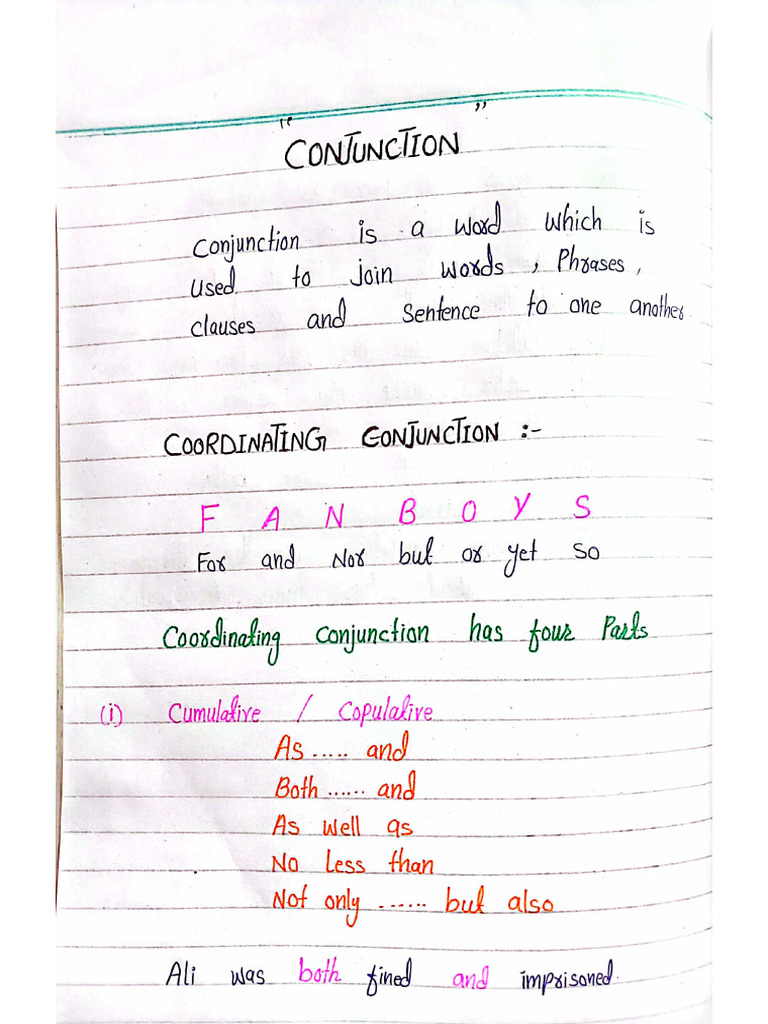 "CONJUNCTION"
Conjunction is a word which is
used to join words, Phrases,
clauses and Sentence to one another
COORDINATING CONJUNCTION :-
F A N B O Y S
For and Nor but or yet So
Coordinating conjunction has four Parts
(i) Cumulative / Copulative
As ..... and
Both ...... and
As well as
No less than
Not only ...... but also
Ali was both fined and imprisoned.